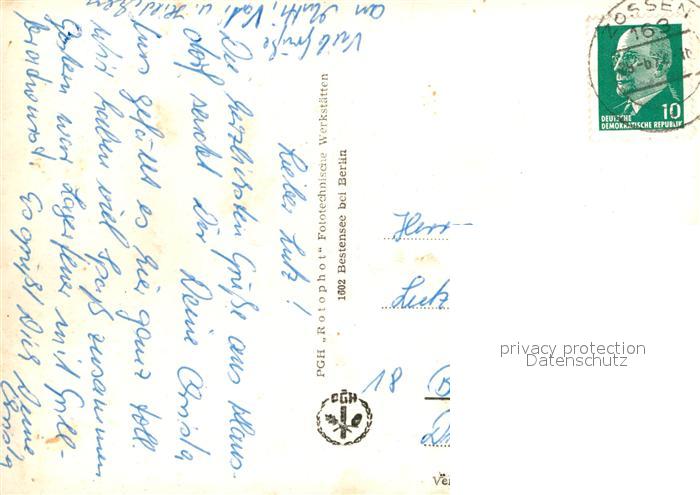 Lieber Lutz!
Die herzlichsten Grüße aus Klaus-
dorf sendet Dir Deine Christa
Uns gefällt es hier ganz toll.
Wir haben viel Spaß zusammen
Gestern war Lagerfeuer mit Grill-
bratwurst. Es grüßt Dich Deine
Christa
Viele Grüße
an Mutti, Vati u.
PGH „Rotophot" Fototechnische Werkstätten
1602 Bestensee bei Berlin
PGH
ZOSSEN
10
DEUTSCHE
DEMOKRATISCHE REPUBLIK
Herrn
Lutz
18
privacy protection
Datenschutz